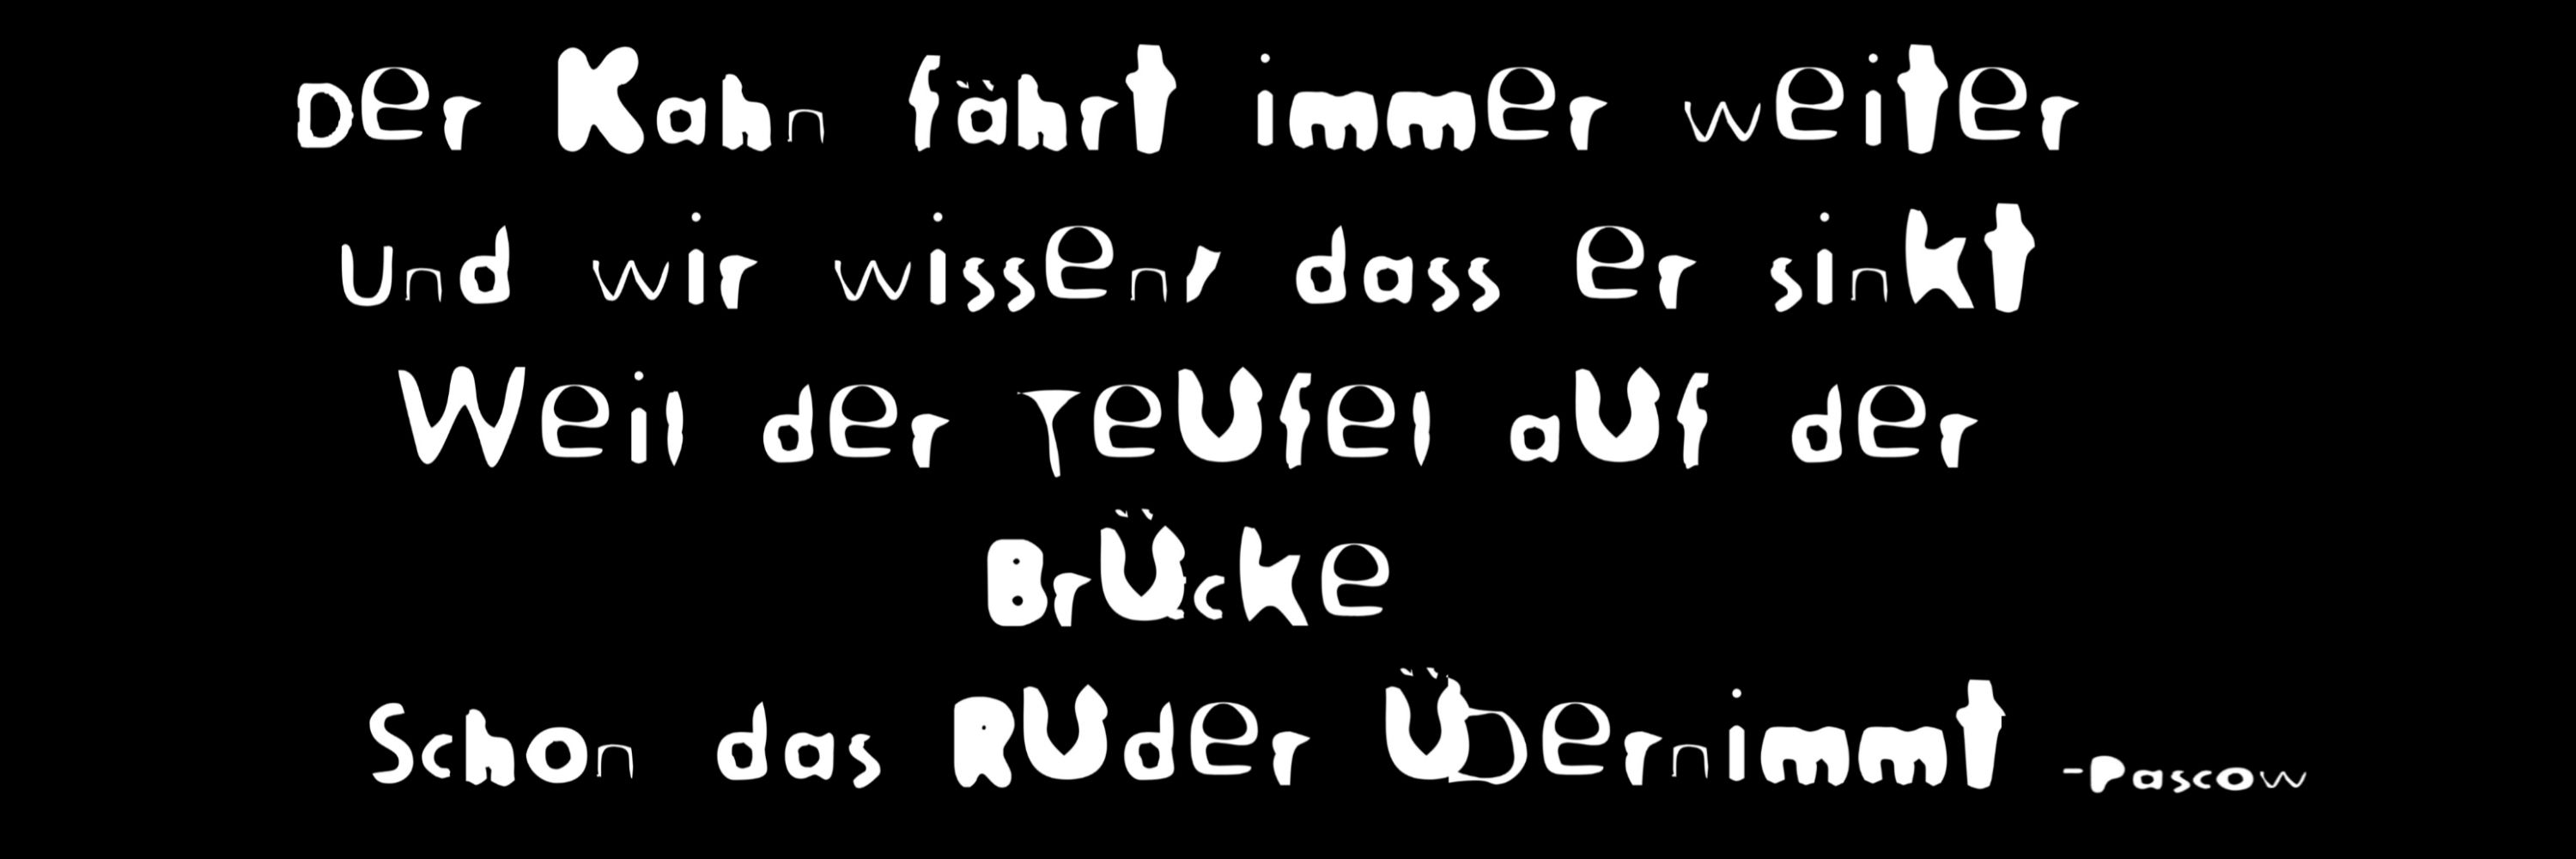 Der Kahn fährt immer weiter
Und wir wissen, dass er sinkt
Weil der Teufel auf der
Brücke
Schon das Ruder übernimmt -Pascow